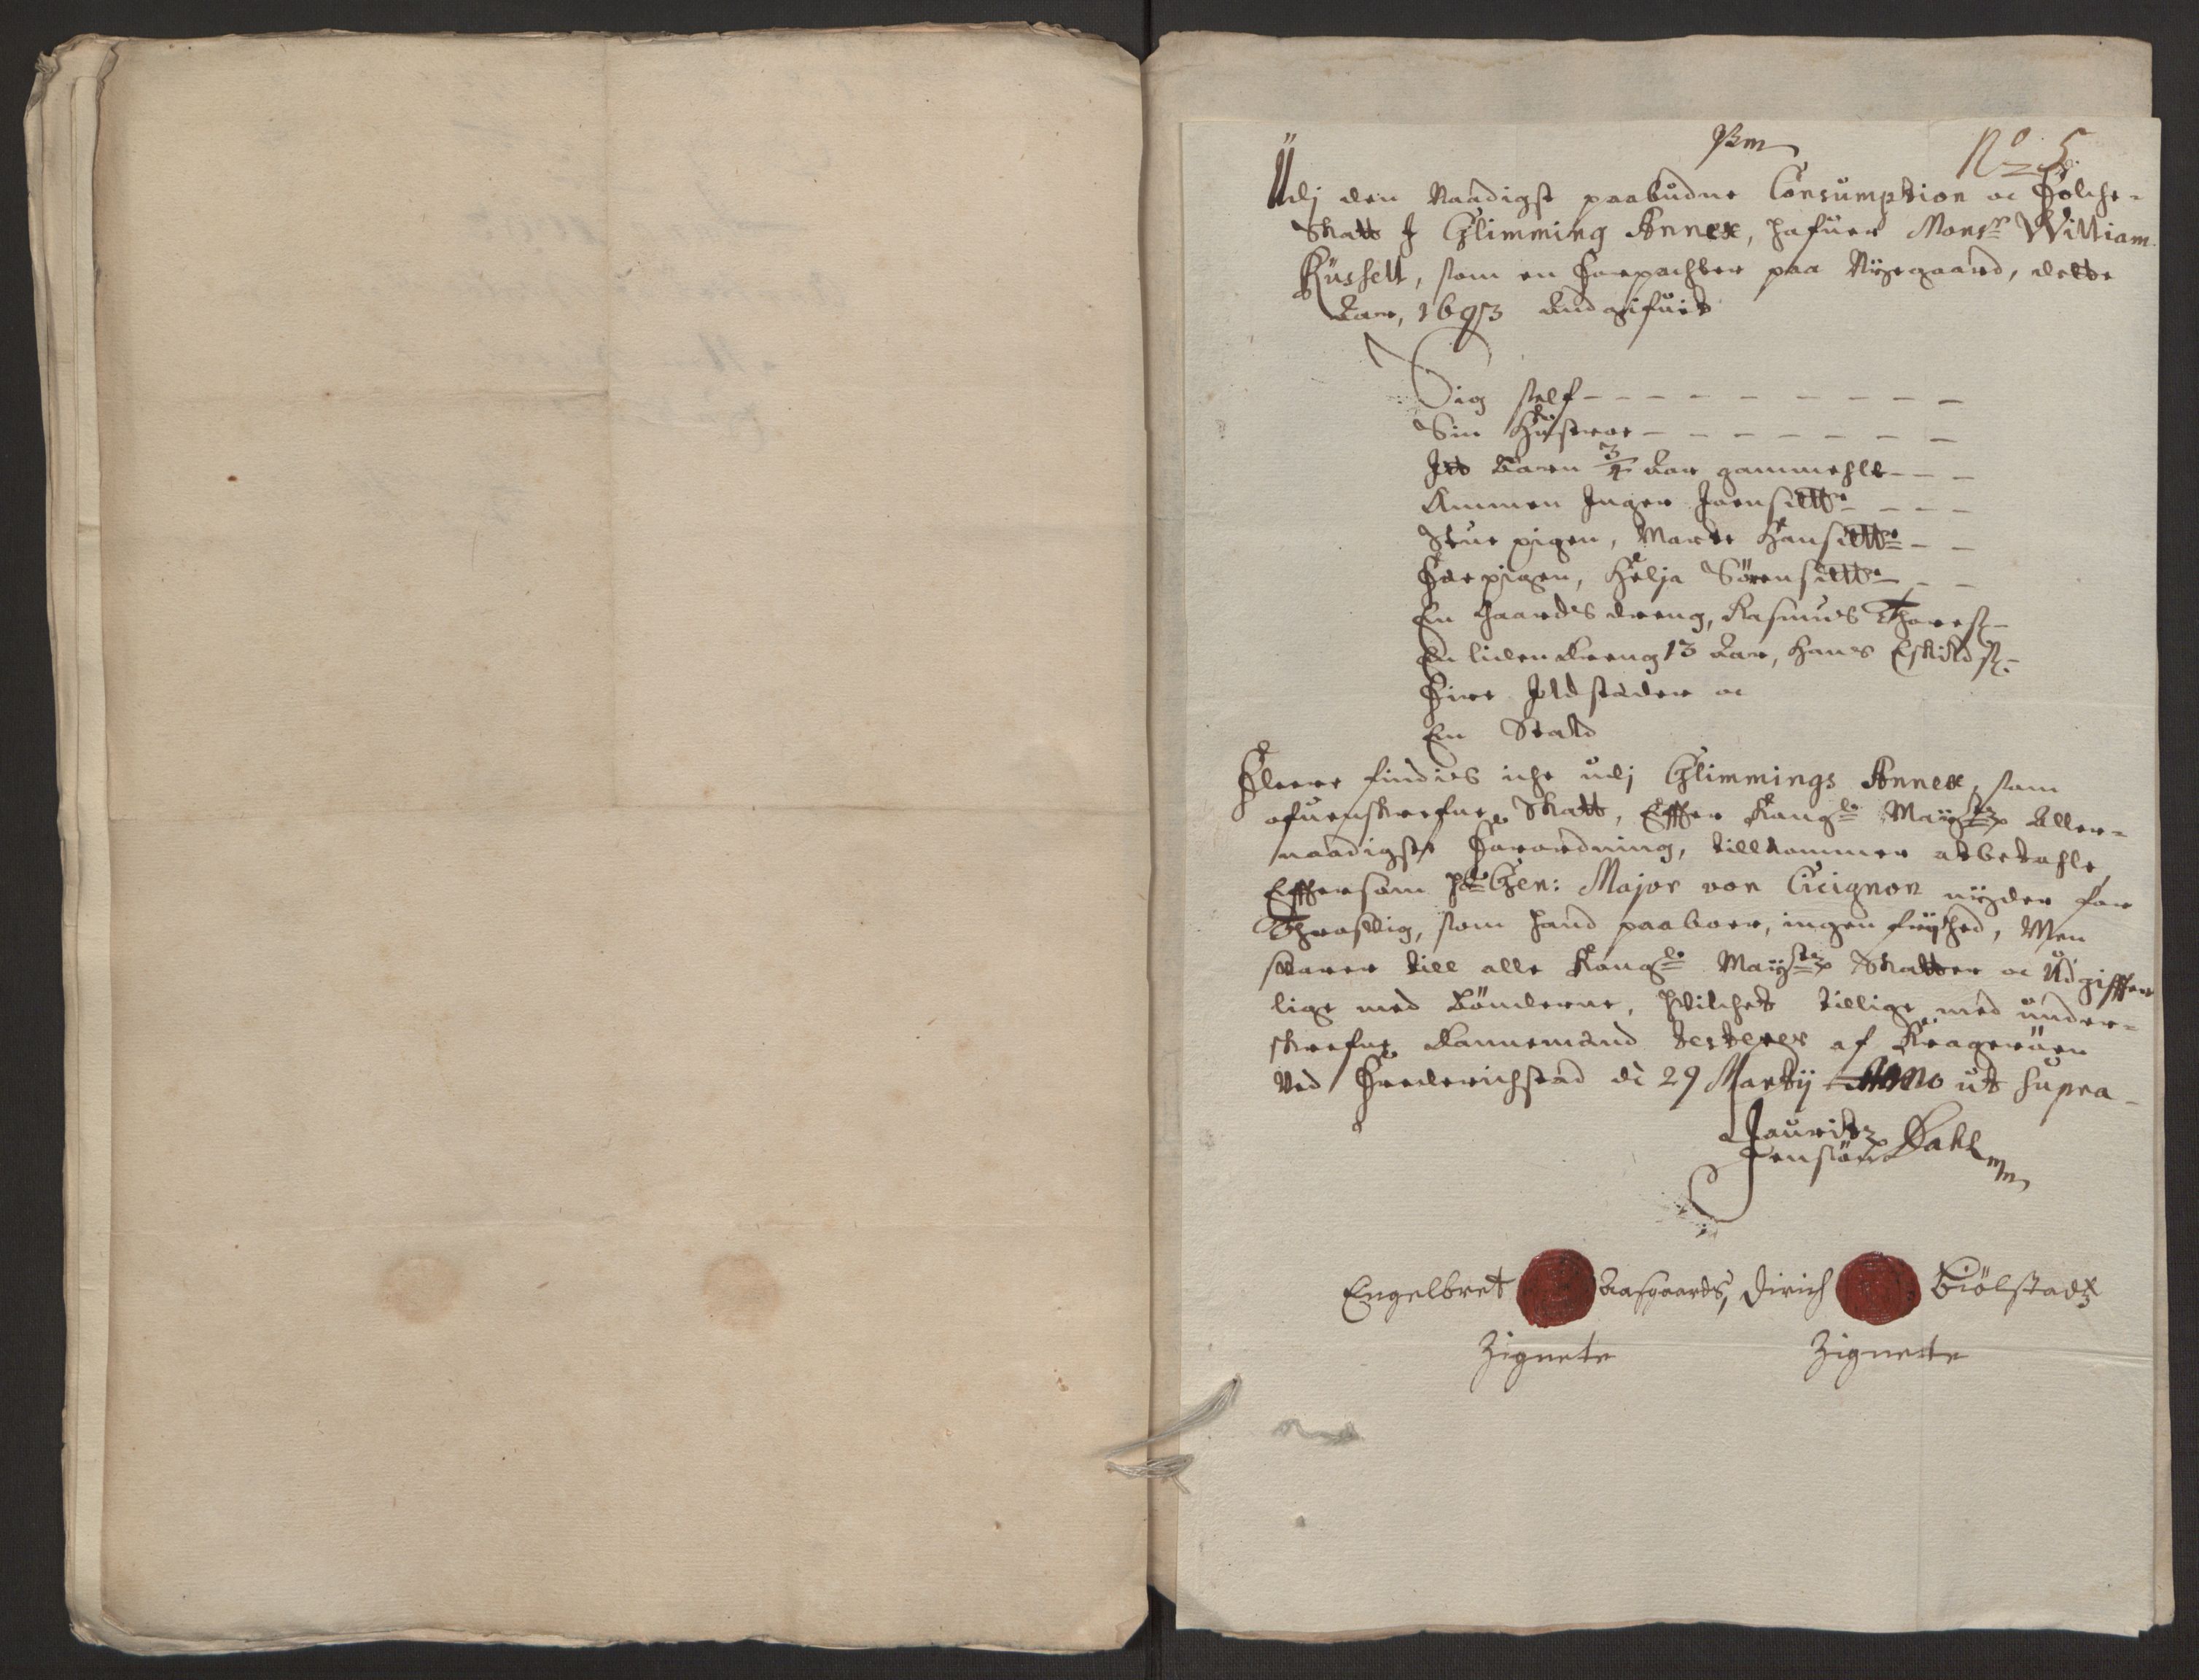 No 5
Udj den Naadigst paabudne Consumption oc Folche-
Skatt J Glimming Annex, hafuer Monsr William
Russell, som en Forpachter paa Nygaard, dette
Aar, 1693 Andgifuit
Sig self - - - - - - - - -
Sin Hustroe - - - - - - -
Jtt Barn 3/4 Aar gammehlt - - -
Ammen Inger Joensdtt - - - -
Stue pigen, Marte Hansdtte - -
Fæ pigen, Helje Sørensdtte - - -
En Gaards dreng, Rasmus Thoresß -
En liden dreng 13 Aar, Hans Eskildß -
Fire Jldstæder oc
En Stald
Fleere findis iche udj Glimmings Annex, som
ofuenskrefne Skatt, Effter Kongle Maysts Aller-
naadigste Forordning, tillkommer at betahle,
Effersom hr Gen: Major von Cicignon nyder for
Throsvig, som hand paaboer, ingen frijhed, Men
svarer till alle Kongle Maysts Skatter oc Udgiffter
lige med Bønderne, hvilchet tillige med under-
skrefne Dannemænd testerer af Kragerøen
Ved Frederichstad di 29 Martij Anno ut supra -
Lauritz
Jensøn Dahl
Engelbret Aasgaards, Dirich Biølstads
Zignete Zignette